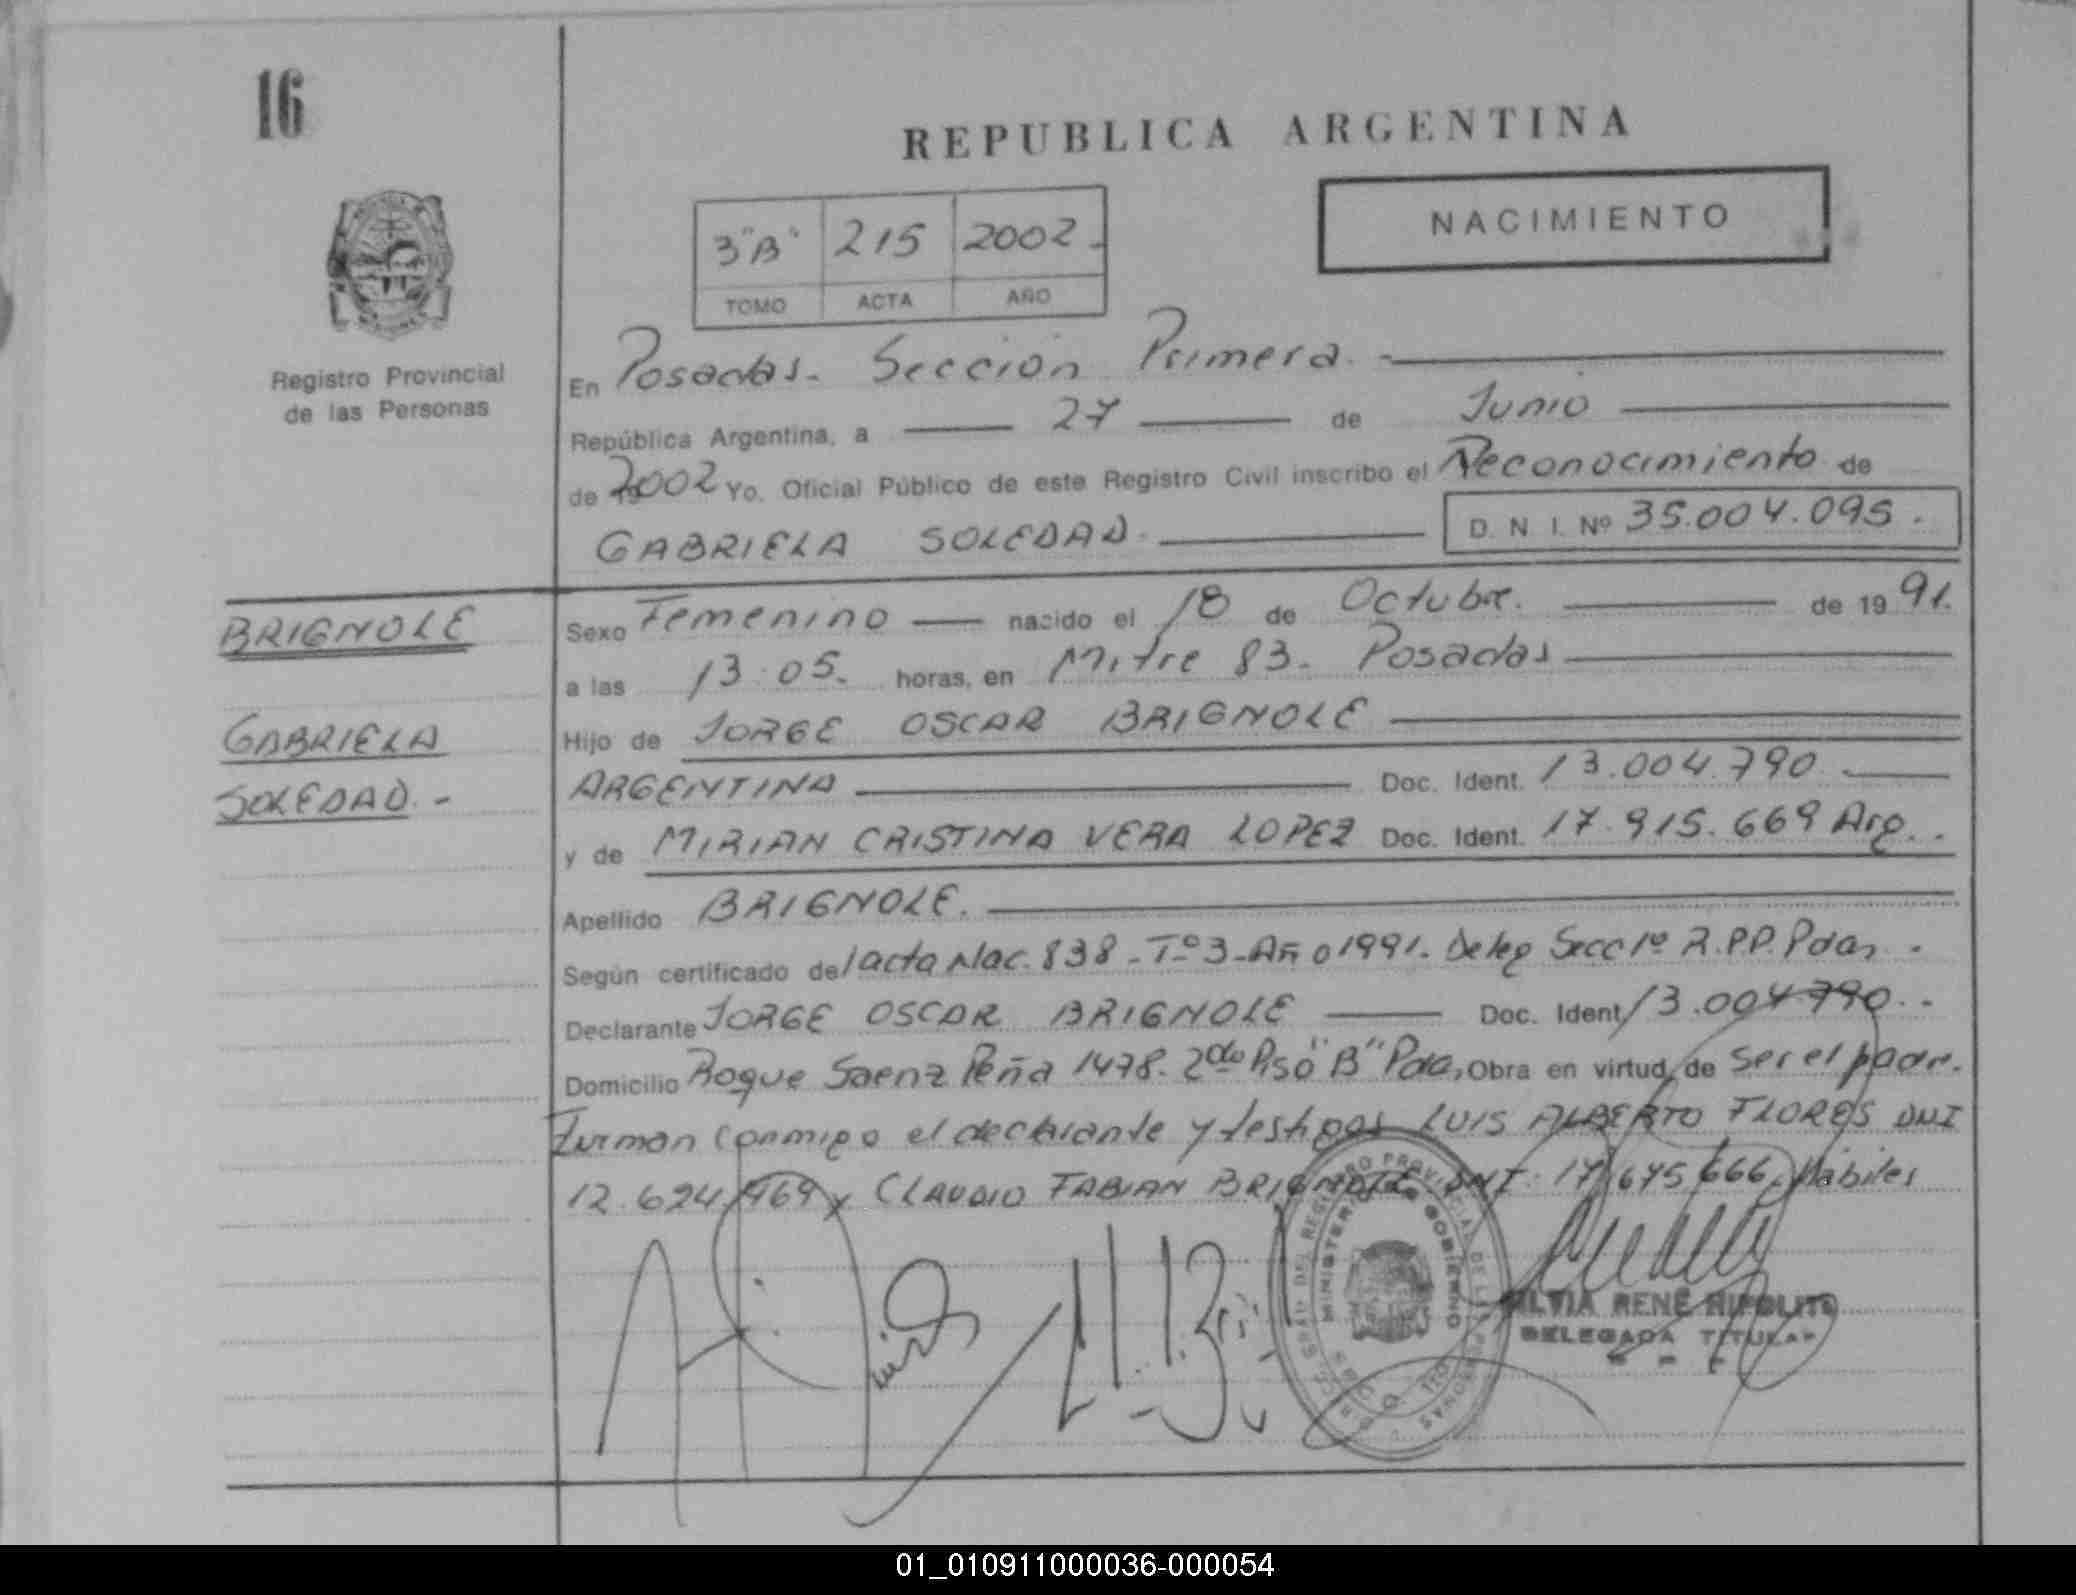 16
REPUBLICA ARGENTINA
3"B" 215 2002.
TOMO ACTA AÑO
NACIMIENTO
Registro Provincial
de las Personas
En Posadas. Sección Primera.
República Argentina, a 27 de Junio
de 2002 Yo. Oficial Público de este Registro Civil inscribo el Reconocimiento de
GABRIELA SOLEDAD. D. N. I. Nº 35.004.095.
BRIGNOLE
GABRIELA
SOLEDAD.-
Sexo Femenino nacido el 18 de Octubre. de 1991.
a las 13:05. horas, en Mitre 83. Posadas
Hijo de JORGE OSCAR BRIGNOLE
ARGENTINA Doc. Ident. 13.004.790
y de MIRIAN CRISTINA VERA LOPEZ Doc. Ident. 17.915.669 Arg..
Apellido BRIGNOLE.
Según certificado del acta Nac. 838-Tº3-Año 1991. Deleg Secc 1º R.P.P. Pdas.
Declarante JORGE OSCAR BRIGNOLE Doc. Ident 13.004.790..
Domicilio Roque Saenz Peña 1478. 2do Piso "B" Pdas, Obra en virtud de ser el padre.
Firman conmigo el declarante y testigos LUIS ALBERTO FLORES DNI
12.624.469 y CLAUDIO FABIAN BRIGNOLE DNI: 17.675.666. Hábiles
REGISTRO PROVINCIAL DE LAS PERSONAS
MINISTERIO DE GOBIERNO
SILVIA RENÉ HIPOLITO
DELEGADA TITULAR
01_010911000036-000054